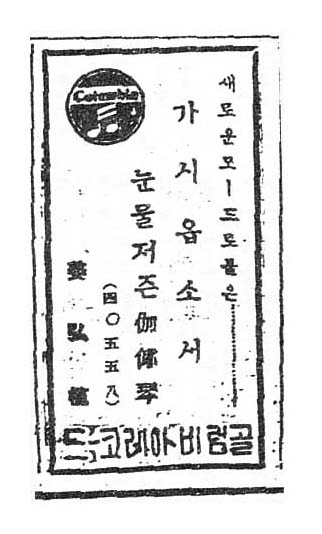 새로운모ー드로
가지옵소서
눈물저즌伽倻琴
(四〇五五八)
姜弘植
Columbia
골럼비아레코드